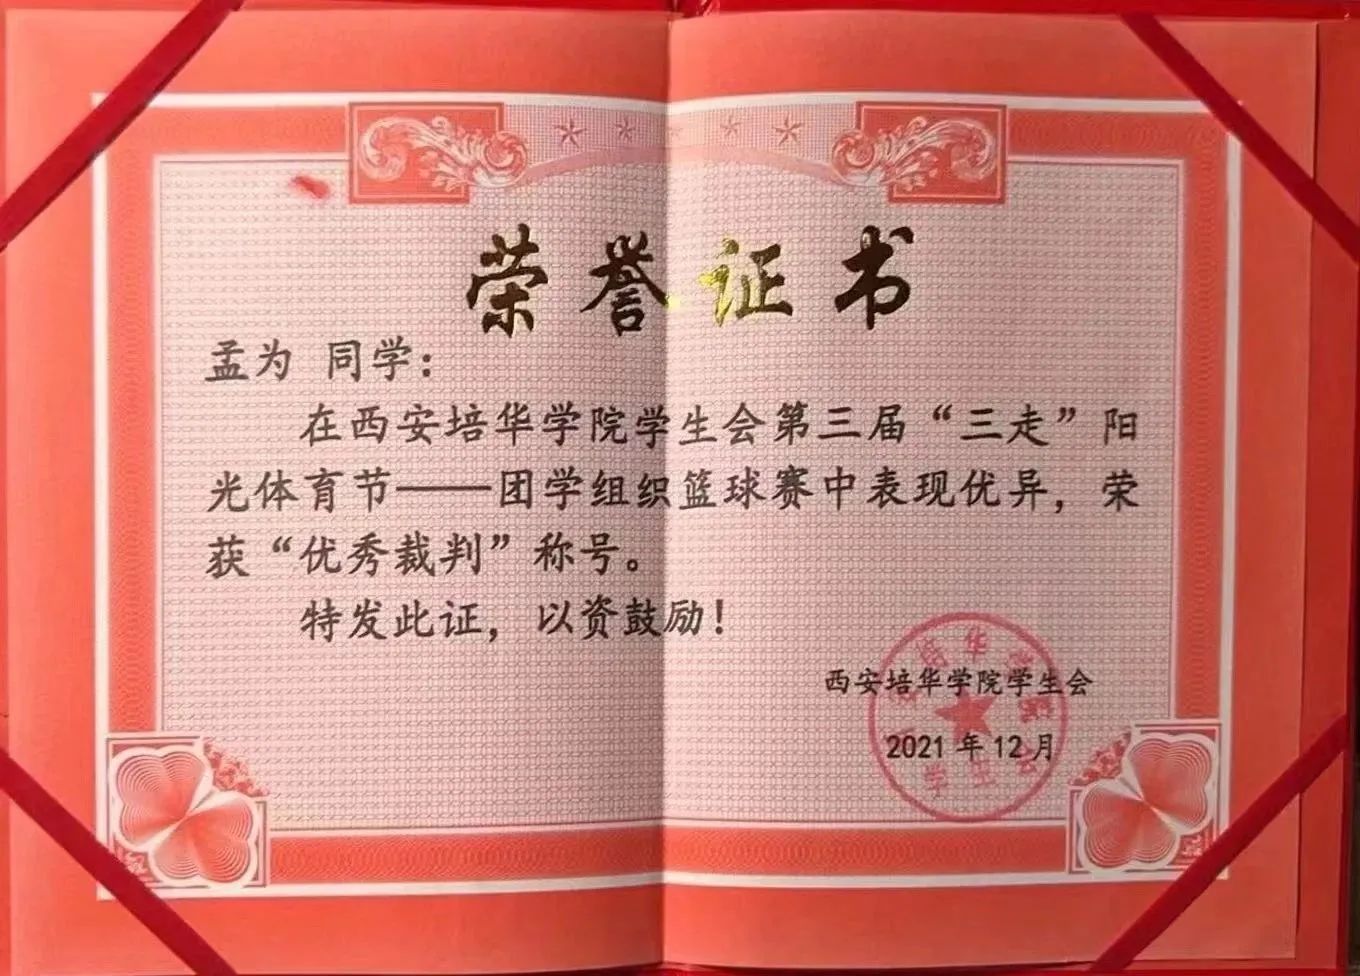 荣誉证书
孟为 同学：
在西安培华学院学生会第三届“三走”阳
光体育节——团学组织篮球赛中表现优异，荣
获“优秀裁判”称号。
特发此证，以资鼓励！
西安培华学院学生会
2021 年 12 月
培华学
学生会